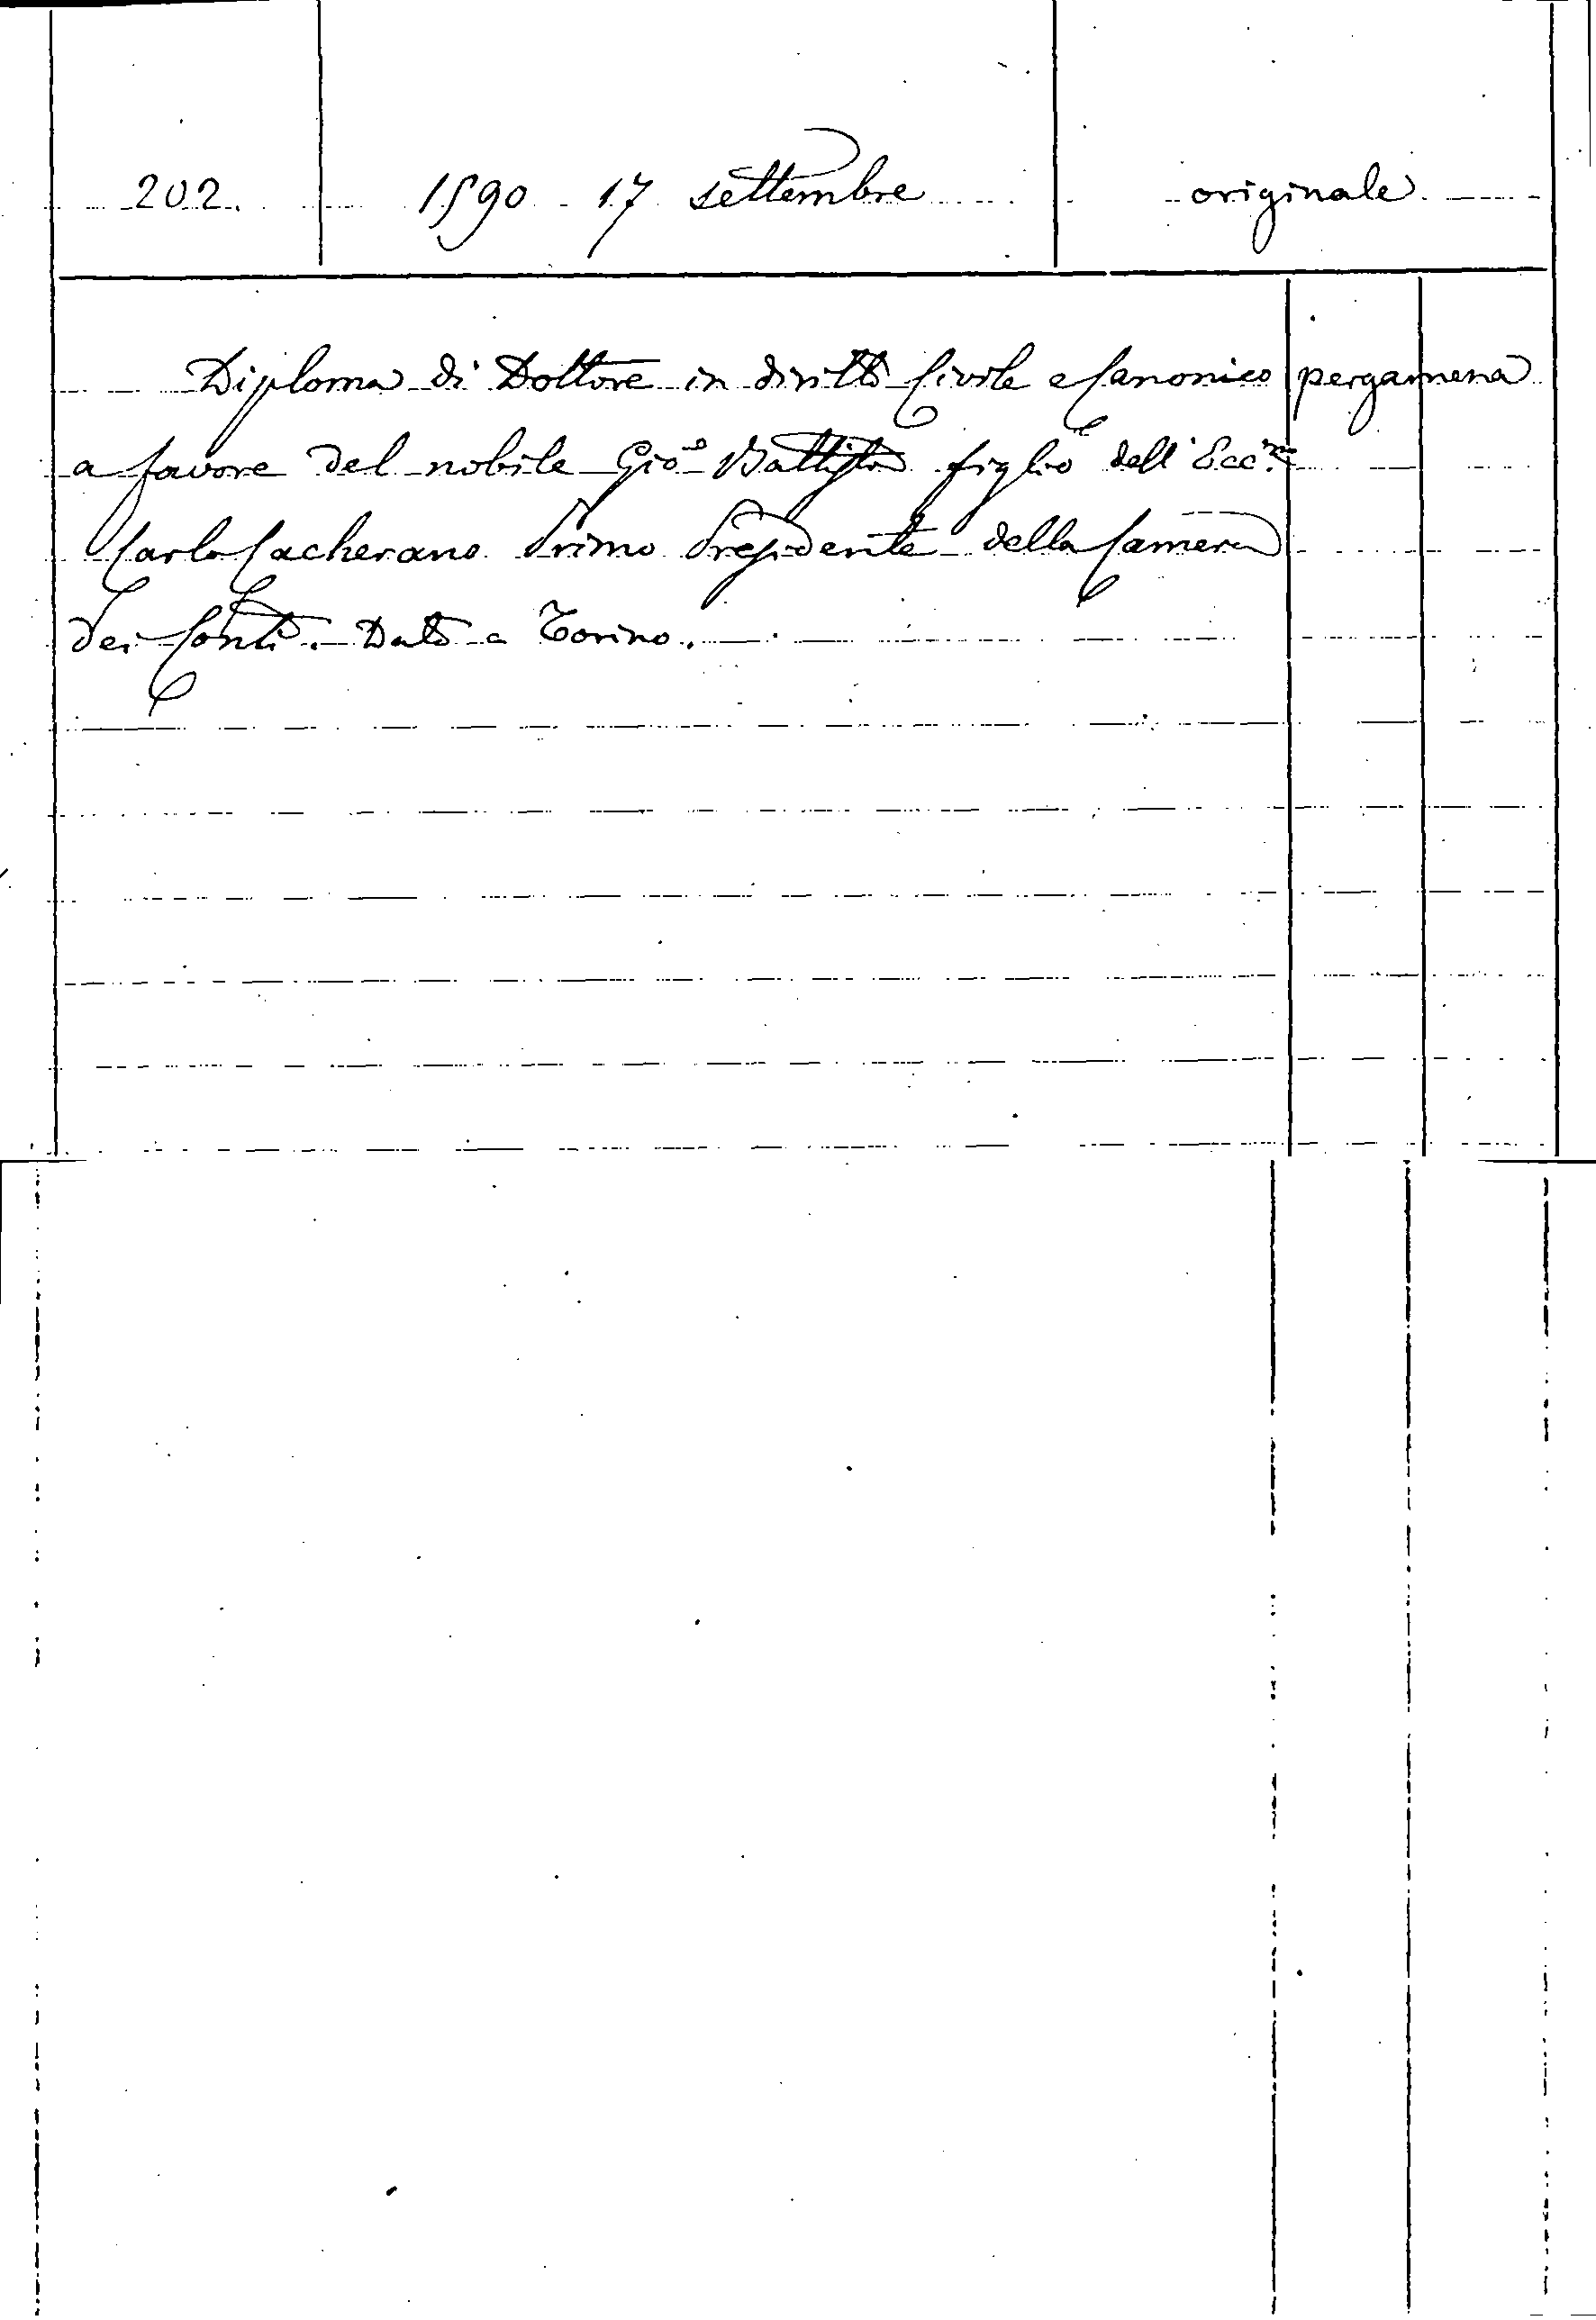 202. 1590 17 settembre originale
Diploma di Dottore in diritto Civile e Canonico pergamena
a favore del nobile Gio. Battista figlio dell' Ecc.mo
Carlo Cacherano Primo Presidente della Camera
dei Conti. Dato a Torino.